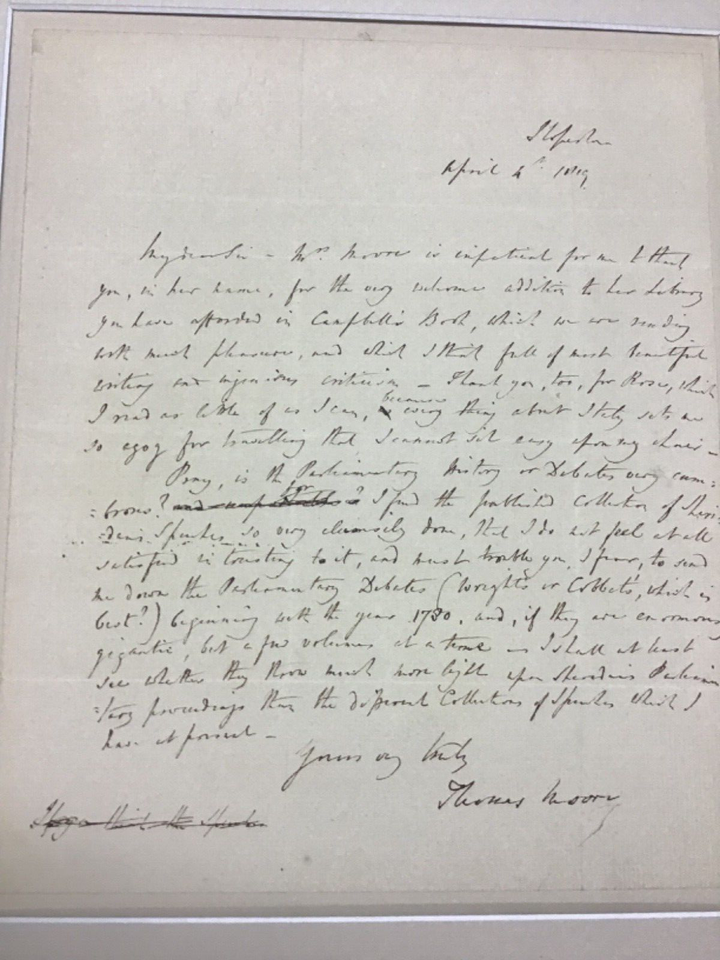 Sloperton
April 4th 1819.
My dear Sir – Mrs. Moore is impatient for me to thank
you, in her name, for the very welcome addition to her Library
you have afforded in Campbell's Book, which we are reading
with much pleasure, and which I think full of most beautiful
writing and ingenious criticism – Thank you, too, for Rose, which
I read as little of as I can, because every thing about Italy sets me
so agog for travelling that I cannot sit easy upon my chair –
Pray, is the Parliamentary History or Debates very cum=
=brous? for I find the published Collection of Sheri=
=dan's Speeches so very clumsily done, that I do not feel at all
satisfied in trusting to it, and must trouble you, I fear, to send
me down the Parliamentary Debates (Wright's or Cobbett's, which is
best?) beginning with the year 1780, and, if they are enormously
gigantic, but a few volumes at a time – I shall at least
see whether they throw much more light upon Sheridan's Parliamen
=tary proceedings than the different Collections of Speeches which I
have at present –
Yours very truly
Thomas Moore